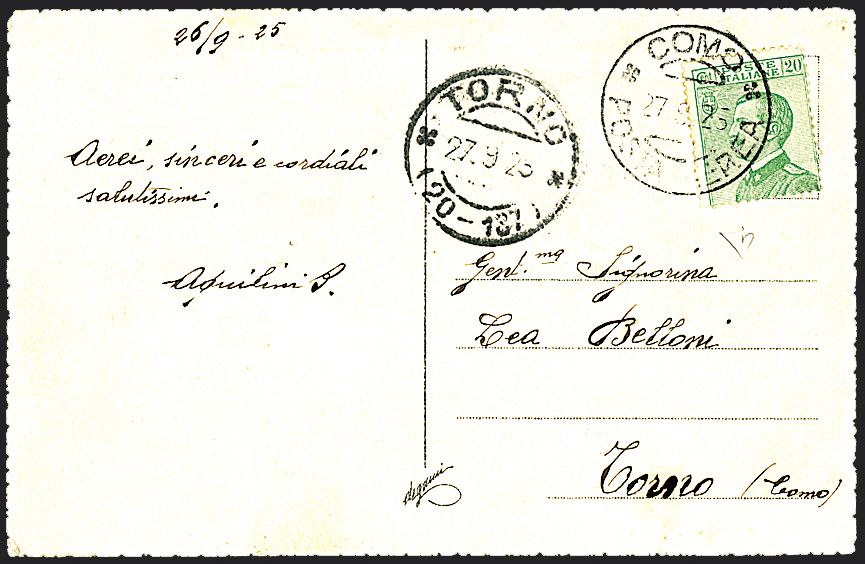 26/9 - 25
Aerei, sinceri e cordiali
salutissimi.
Aquilini S.
TORNO
27.9.25
(20-137)
COMO
27.9.25
POSTA AEREA
POSTE
ITALIANE 20
Gent.ma Signorina
Lea Belloni
Torno (Como)
degami